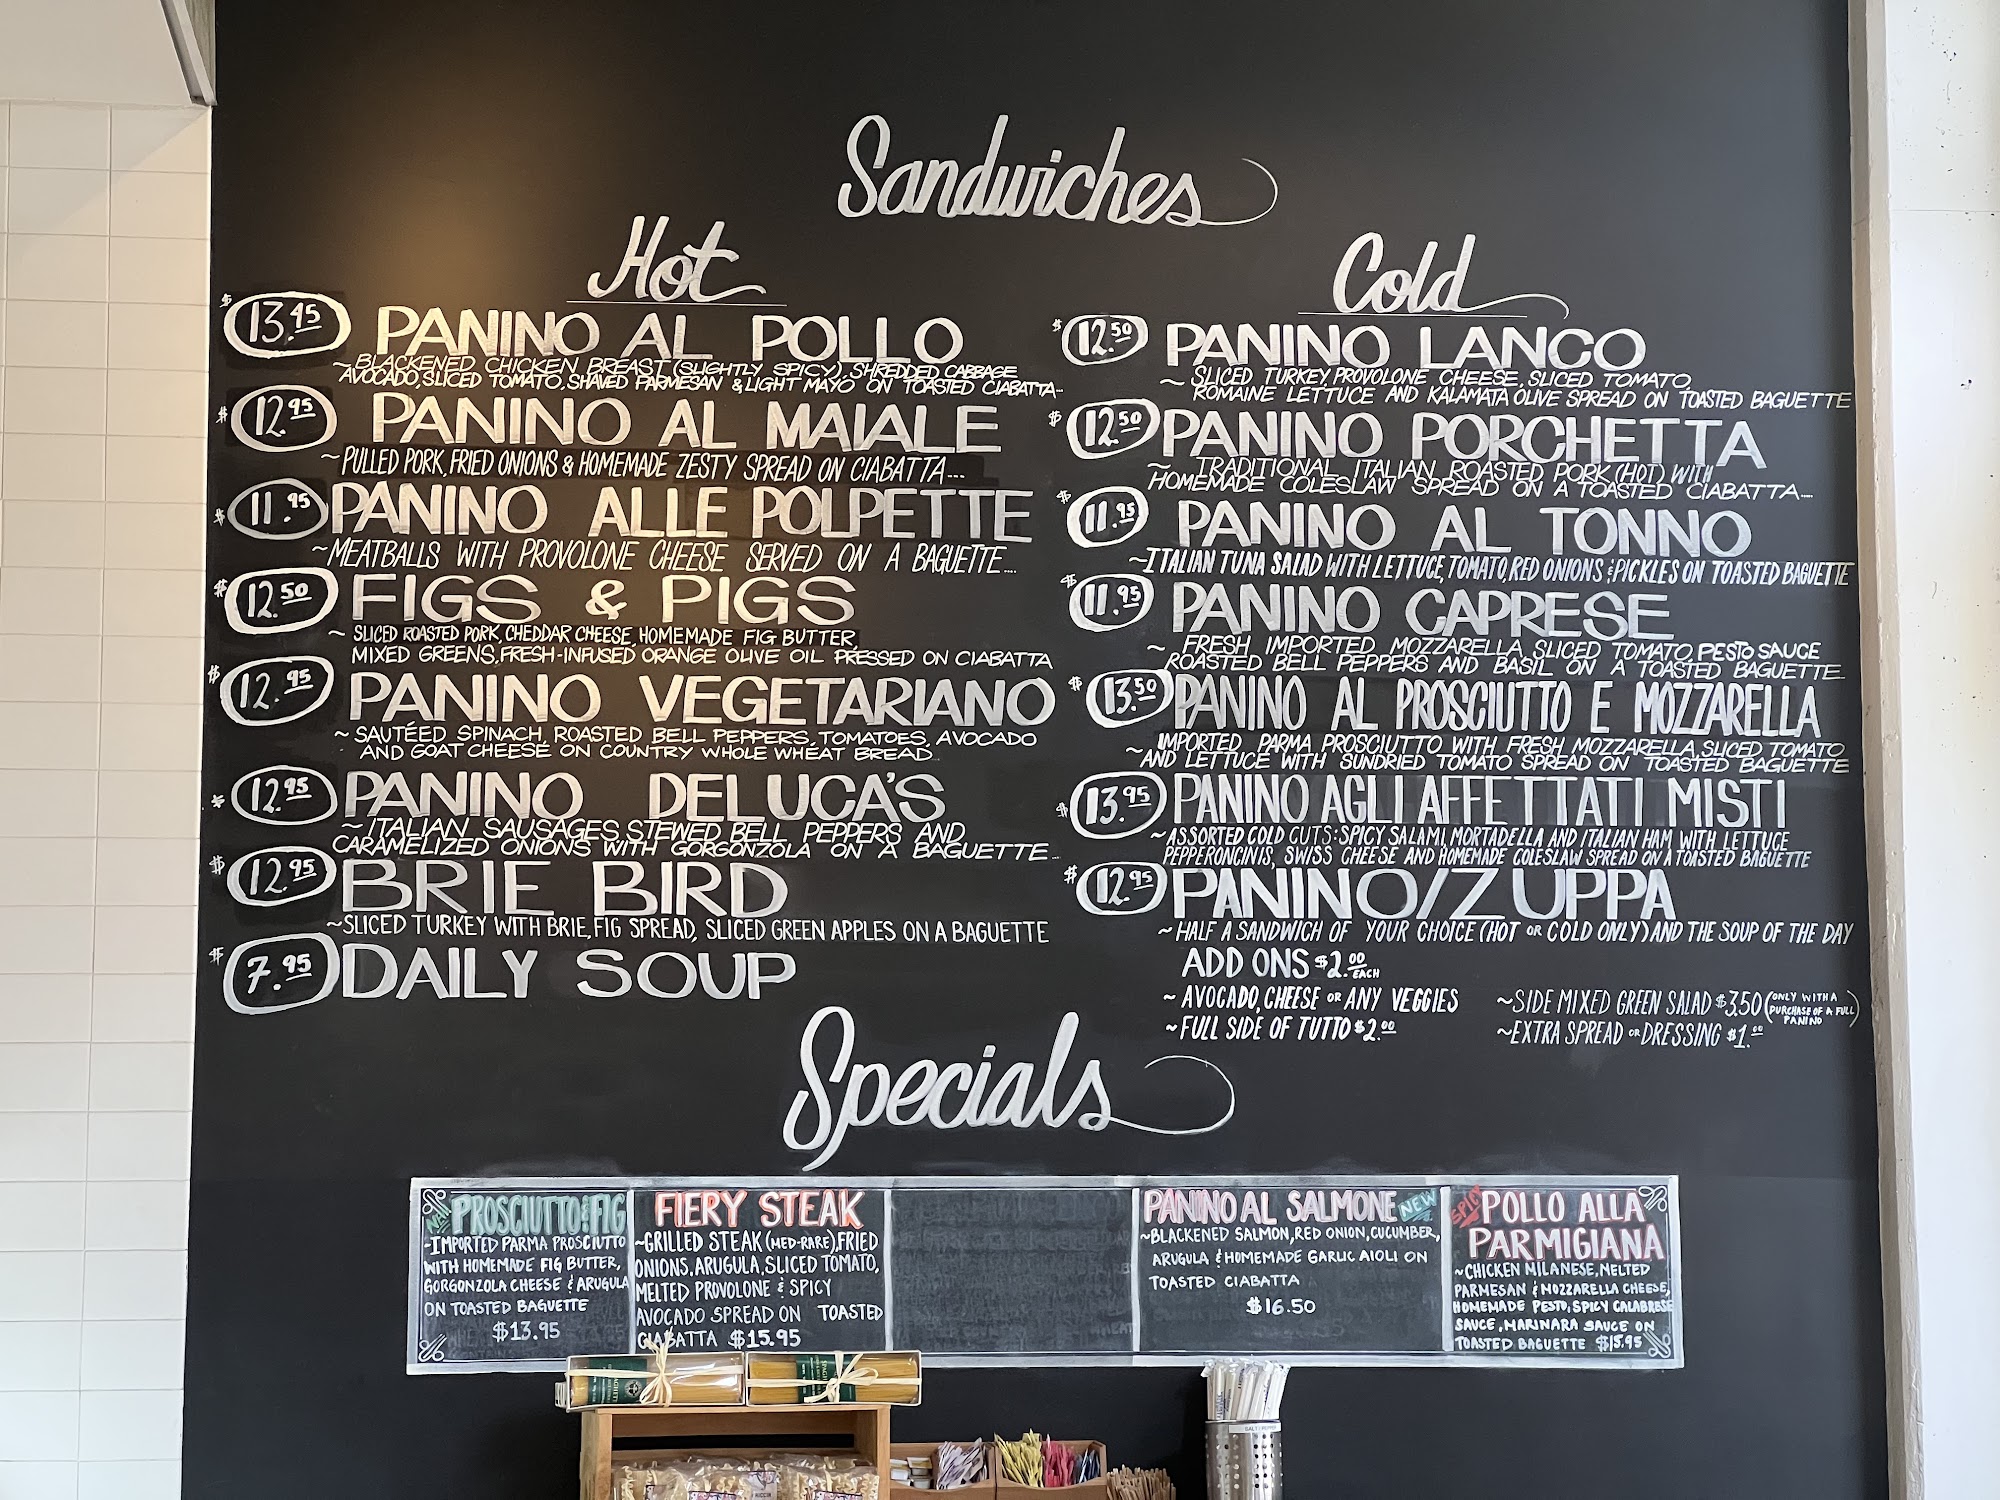 Sandwiches
Hot
$13.45 PANINO AL POLLO
~BLACKENED CHICKEN BREAST (SLIGHTLY SPICY), SHREDDED CABBAGE
AVOCADO, SLICED TOMATO, SHAVED PARMESAN & LIGHT MAYO ON TOASTED CIABATTA...
$12.95 PANINO AL MAIALE
~PULLED PORK, FRIED ONIONS & HOMEMADE ZESTY SPREAD ON CIABATTA....
$11.95 PANINO ALLE POLPETTE
~MEATBALLS WITH PROVOLONE CHEESE SERVED ON A BAGUETTE....
$12.50 FIGS & PIGS
~SLICED ROASTED PORK, CHEDDAR CHEESE, HOMEMADE FIG BUTTER,
MIXED GREENS, FRESH-INFUSED ORANGE OLIVE OIL PRESSED ON CIABATTA
$12.95 PANINO VEGETARIANO
~SAUTÉED SPINACH, ROASTED BELL PEPPERS, TOMATOES, AVOCADO
AND GOAT CHEESE ON COUNTRY WHOLE WHEAT BREAD
$12.95 PANINO DELUCA'S
~ITALIAN SAUSAGES, STEWED BELL PEPPERS AND
CARAMELIZED ONIONS WITH GORGONZOLA ON A BAGUETTE...
$12.95 BRIE BIRD
~SLICED TURKEY WITH BRIE, FIG SPREAD, SLICED GREEN APPLES ON A BAGUETTE
$7.95 DAILY SOUP
Cold
$12.50 PANINO LANCO
~SLICED TURKEY, PROVOLONE CHEESE, SLICED TOMATO,
ROMAINE LETTUCE AND KALAMATA OLIVE SPREAD ON TOASTED BAGUETTE
$12.50 PANINO PORCHETTA
~TRADITIONAL ITALIAN ROASTED PORK (HOT) WITH
HOMEMADE COLESLAW SPREAD ON A TOASTED CIABATTA....
$11.95 PANINO AL TONNO
~ITALIAN TUNA SALAD WITH LETTUCE, TOMATO, RED ONIONS & PICKLES ON TOASTED BAGUETTE
$11.95 PANINO CAPRESE
~FRESH IMPORTED MOZZARELLA, SLICED TOMATO, PESTO SAUCE
ROASTED BELL PEPPERS AND BASIL ON A TOASTED BAGUETTE
$13.50 PANINO AL PROSCIUTTO E MOZZARELLA
~IMPORTED PARMA PROSCIUTTO WITH FRESH MOZZARELLA, SLICED TOMATO
AND LETTUCE WITH SUNDRIED TOMATO SPREAD ON TOASTED BAGUETTE
$13.95 PANINO AGLI AFFETTATI MISTI
~ASSORTED COLD CUTS: SPICY SALAMI, MORTADELLA AND ITALIAN HAM WITH LETTUCE
PEPPERONCINIS, SWISS CHEESE AND HOMEMADE COLESLAW SPREAD ON A TOASTED BAGUETTE
$12.95 PANINO/ZUPPA
~HALF A SANDWICH OF YOUR CHOICE (HOT OR COLD ONLY) AND THE SOUP OF THE DAY
ADD ONS $2.00 EACH
~AVOCADO, CHEESE OR ANY VEGGIES
~FULL SIDE OF TUTTO $2.00
~SIDE MIXED GREEN SALAD $3.50 (ONLY WITH A PURCHASE OF A FULL PANINO)
~EXTRA SPREAD OR DRESSING $1.00
Specials
NEW PROSCIUTTO & FIG
~IMPORTED PARMA PROSCIUTTO
WITH HOMEMADE FIG BUTTER,
GORGONZOLA CHEESE & ARUGULA
ON TOASTED BAGUETTE
$13.95
FIERY STEAK
~GRILLED STEAK (MED-RARE), FRIED
ONIONS, ARUGULA, SLICED TOMATO,
MELTED PROVOLONE & SPICY
AVOCADO SPREAD ON TOASTED
CIABATTA $15.95
PANINO AL SALMONE NEW
~BLACKENED SALMON, RED ONION, CUCUMBER,
ARUGULA & HOMEMADE GARLIC AIOLI ON
TOASTED CIABATTA
$16.50
SPICY POLLO ALLA
PARMIGIANA
~CHICKEN MILANESE, MELTED
PARMESAN & MOZZARELLA CHEESE,
HOMEMADE PESTO, SPICY CALABRESE
SAUCE, MARINARA SAUCE ON
TOASTED BAGUETTE $15.95